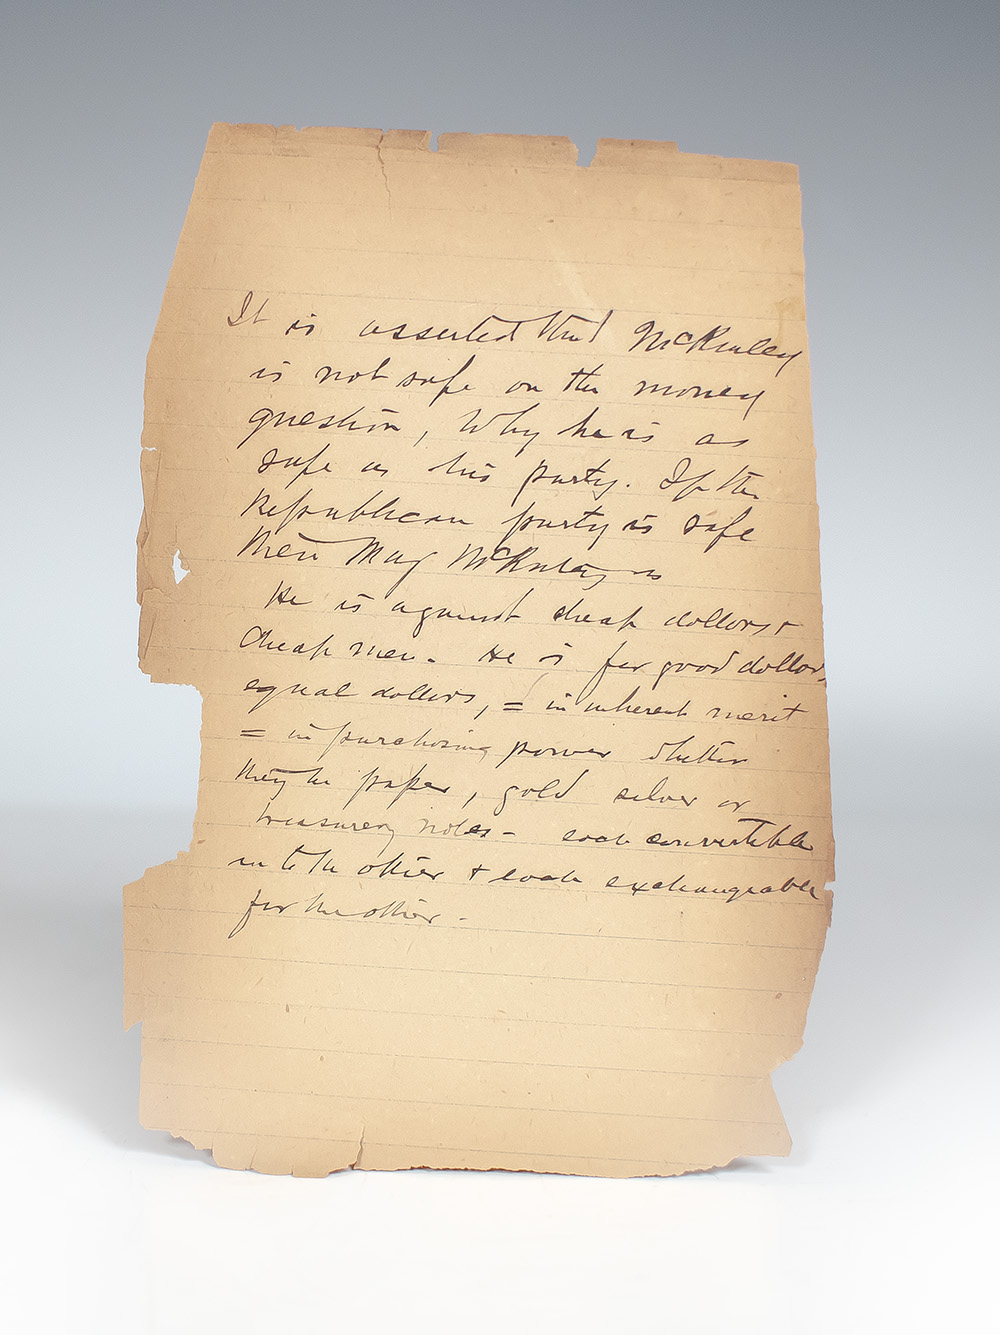 It is asserted that McKinley
is not safe on the money
question, Why he is as
safe as his party. If the
Republican party is safe
then Maj McKinley is
He is against cheap dollars +
cheap men. He is for good dollars,
equal dollars, = in inherent merit
= in purchasing power whether
they be paper, gold silver or
treasury notes - each convertible
into the other + each exchangeable
for the other -